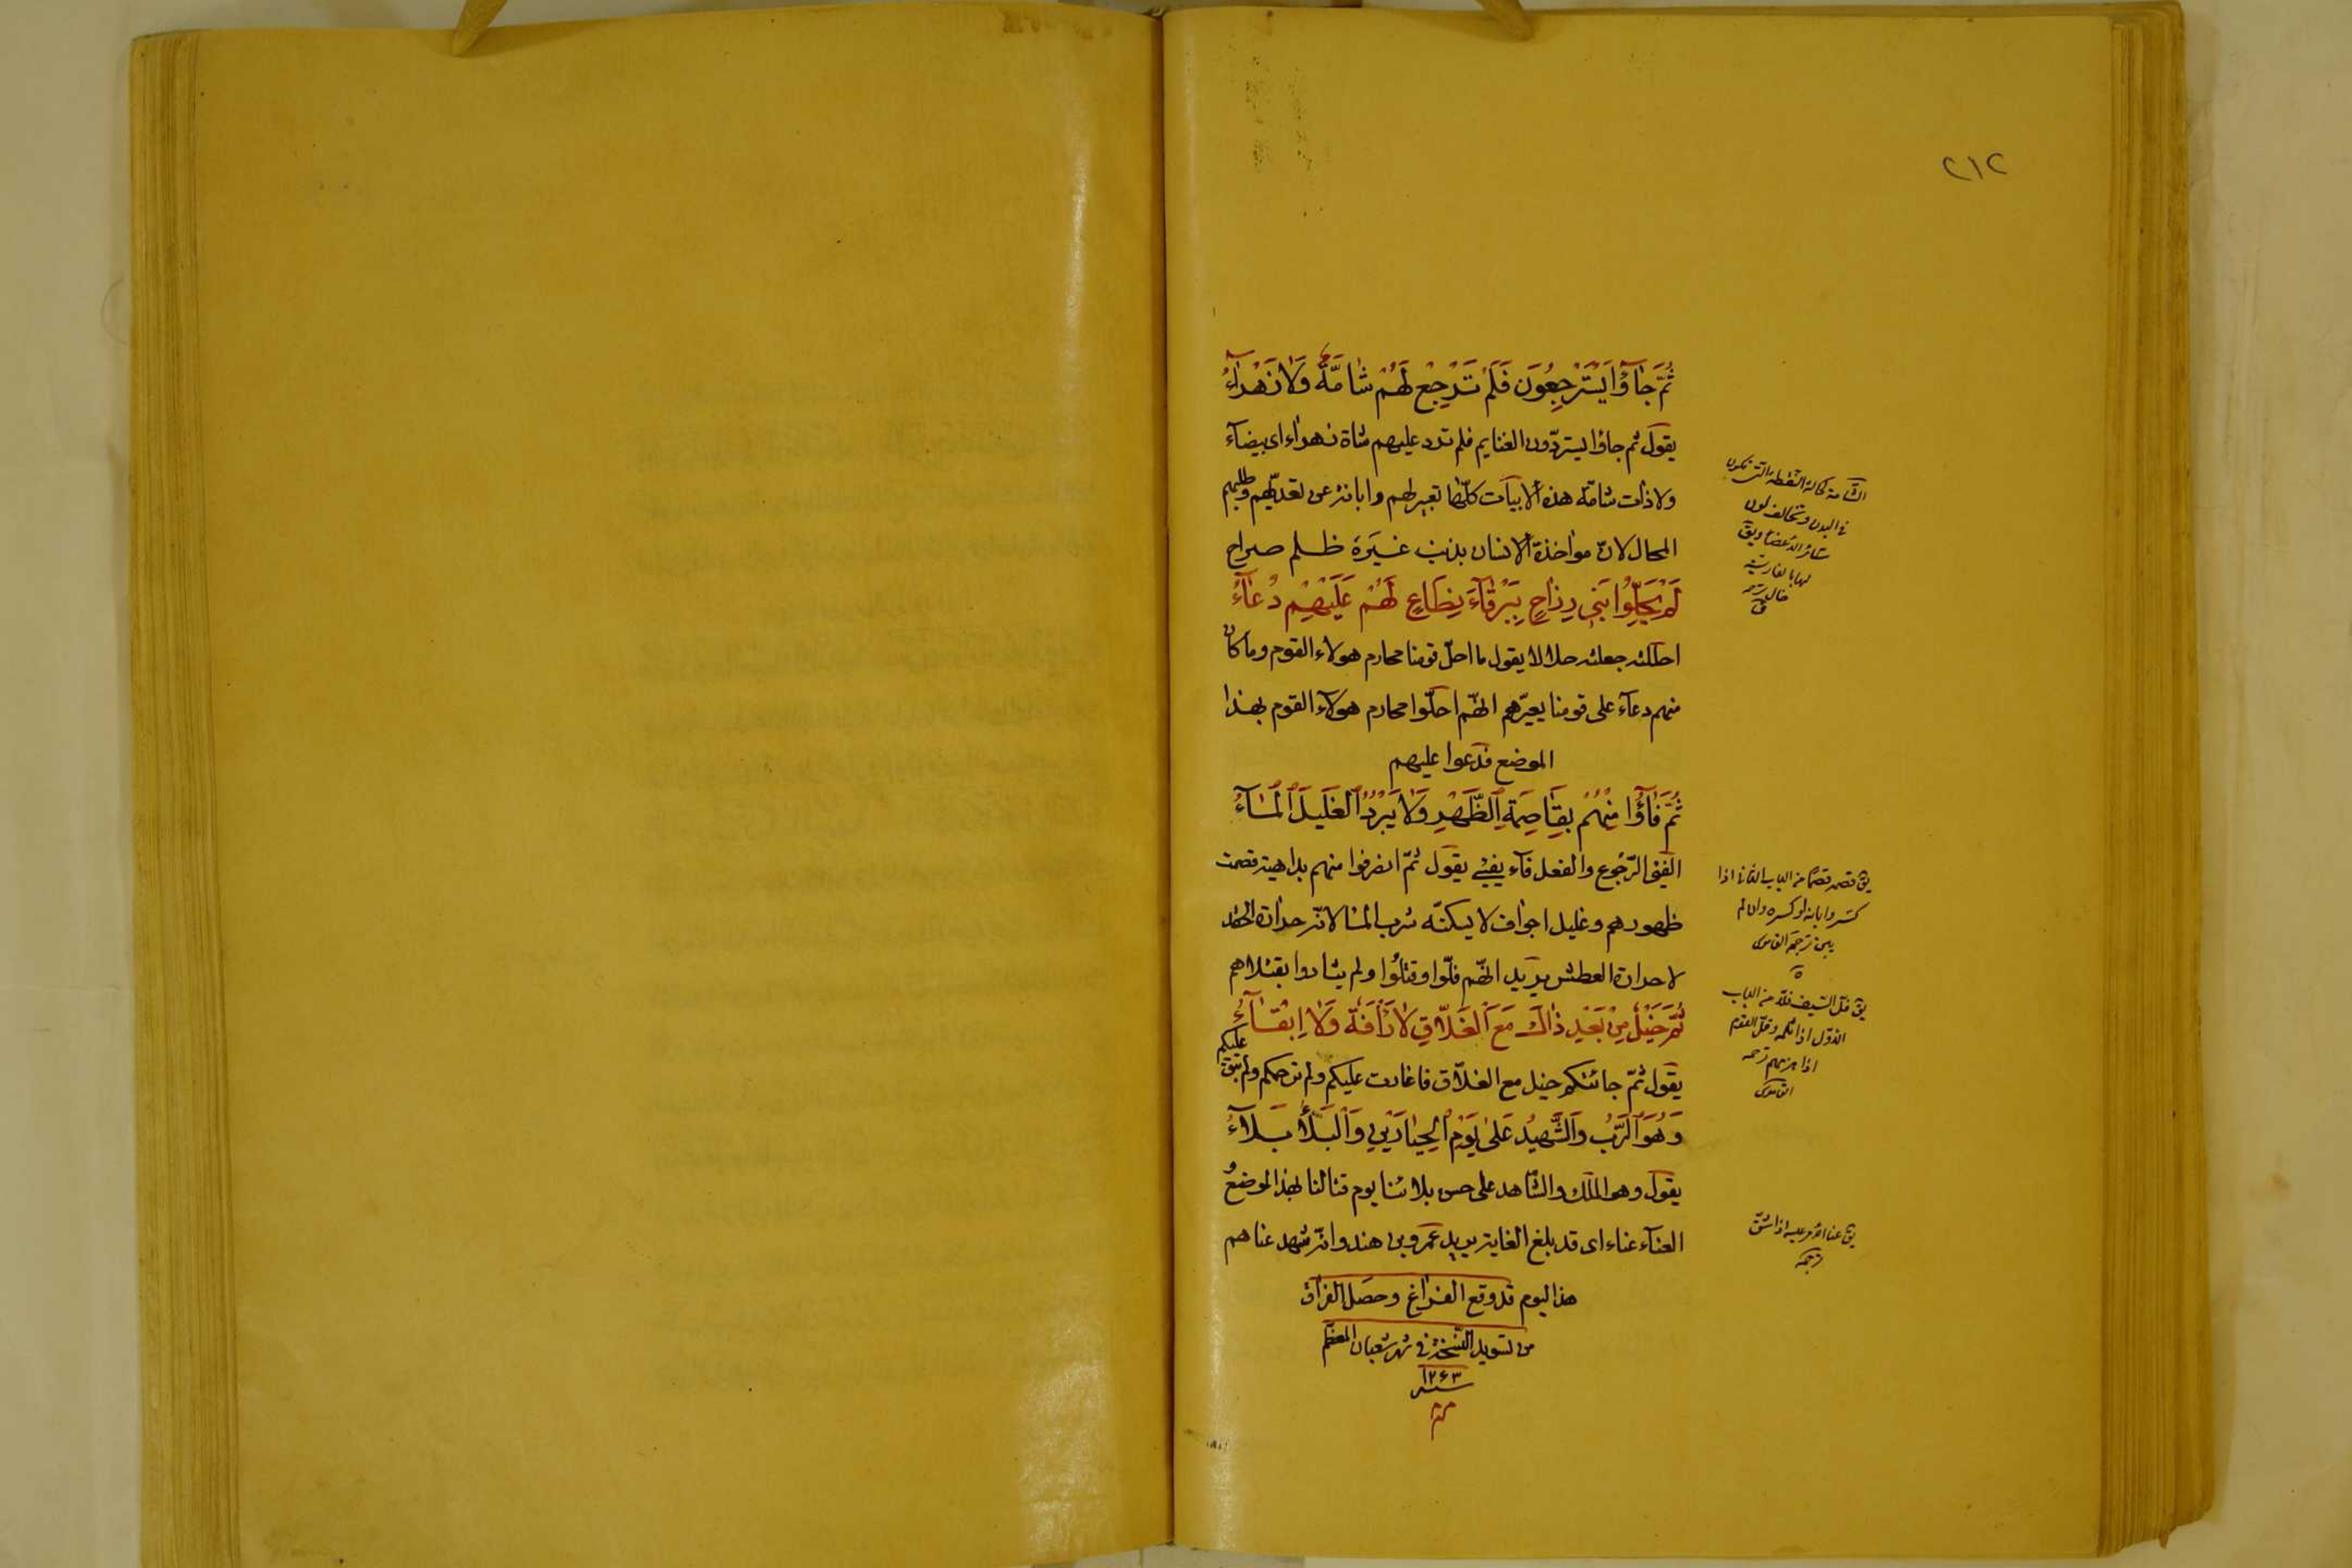 ٢١٢
ثُمَّ جٰاؤُا يَسْتَرْجِعُونَ فَلَمْ تَرْجِعْ لَهُمْ شٰامَةٌ وَلٰا زَهْرٰاءُ
يقول ثم جاؤا يستردّون الغنايم فلم ترد عليهم شاة زهراء اى بيضآء
ولا ذات شامة هذه الابيات كلّها تعيير لهم وابانة عن تعدّيهم وطلبهم
المحال لانّ مواخذة الانسان بذنب غيره ظلم صراح
لَمْ يُحِلُّوا بَنِى رِزٰاحٍ بِبَرْقٰآءَ نِطٰاعٍ لَهُمْ عَلَيْهِمْ دُعٰآءُ
احللته جعلته حلالا يقول ما احلّ قومنا محارم هولاء القوم وما كان
منهم دعآء على قومنا يعيّرهم انهّم احلّوا محارم هولآء القوم بهذا
الموضع فدعوا عليهم
ثُمَّ فٰاؤُا مِنْهُمْ بِقٰاصِمَةِ الظَّهْرِ وَلٰا يَبْرُدُ الْغَلِيلَ الْمٰآءُ
الفئ الرّجوع والفعل فآء يفيئ يقول ثمّ انصرفوا منهم بداهية قصمت
ظهورهم وغليل اجواف لا يسكنّه شرب الماء لانّه حرارة الحقد
لا حرارة العطش يريد انهّم فلّوا وقتلوا ولم يثاروا بقتلاهم
ثُمَّ خَيْلٌ مِنْ بَعْدِ ذٰاكَ مَعَ الْغَلّٰاقِ لٰا رَأْفَةٌ وَلٰا اِبْقٰآءُ
يقول ثمّ جائتكم خيل مع الغلّاق فاغارت عليكم ولم ترحمكم ولم تبق عليكم
وَهُوَ الرَّبُّ وَالشَّهِيدُ عَلىٰ يَوْمِ الْحِيٰارَيْنِ وَالْبَلٰآءُ بَلٰآءُ
يقول وهو الملك والشّاهد على حسن بلائنا يوم قتالنا بهذا الموضع و
العنآء عناء اى قد بلغ الغاية يريد عمرو بن هند وانّه شهد عناهم
هذا اليوم قد وقع الفراغ وحصل الفراق
من تسويد النّسخة فى شهر شعبان المعظّم
سنه ١٢۶٣
الشامة كحالة النقطة التى تكون
فى البدن وتخالف لون
سائر الاعضا ويق
لها بالفارسية
خال ترجمه
ق
يق قصمه قصما من الباب الثانى اذا
كسره وابانه او كسره وان لم
يبن ترجمة القاموس
يق فلّ السّيف فلّا من الباب
الاوّل اذا ثلمه وفلّ القوم
اذا هزمهم ترجمه
القاموس
يق عنا الامر عليه اذا شقّ
ترجمه